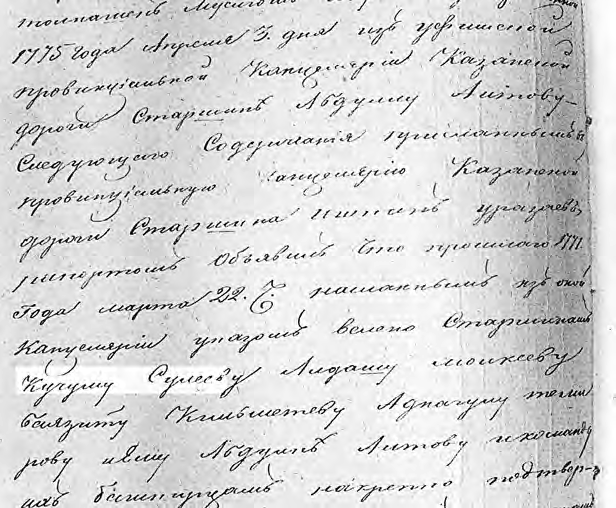 1775 года Апреля 3. дня изъ уфимской
провинціальной Канцеляріи Казанской
дороги Старшинѣ Абдулу Аитову
Следующего Содержанія присланнымъ в
провинціальную канцелярію Казанской
дороги Старшина Ишпинъ уразаевъ
рапортомъ Объявилъ Что прошлаго 1771.
Года марта 22. г. насланнымъ изъ оной
Канцеляріи указомъ велено Старшинамъ
Кучуму Сулееву Алдашу моисееву
баязиту Кильметеву Аднагулу теми
рову иему Абдулѣ Аитову икоманд
ихъ башкирцамъ накрепко подтвер